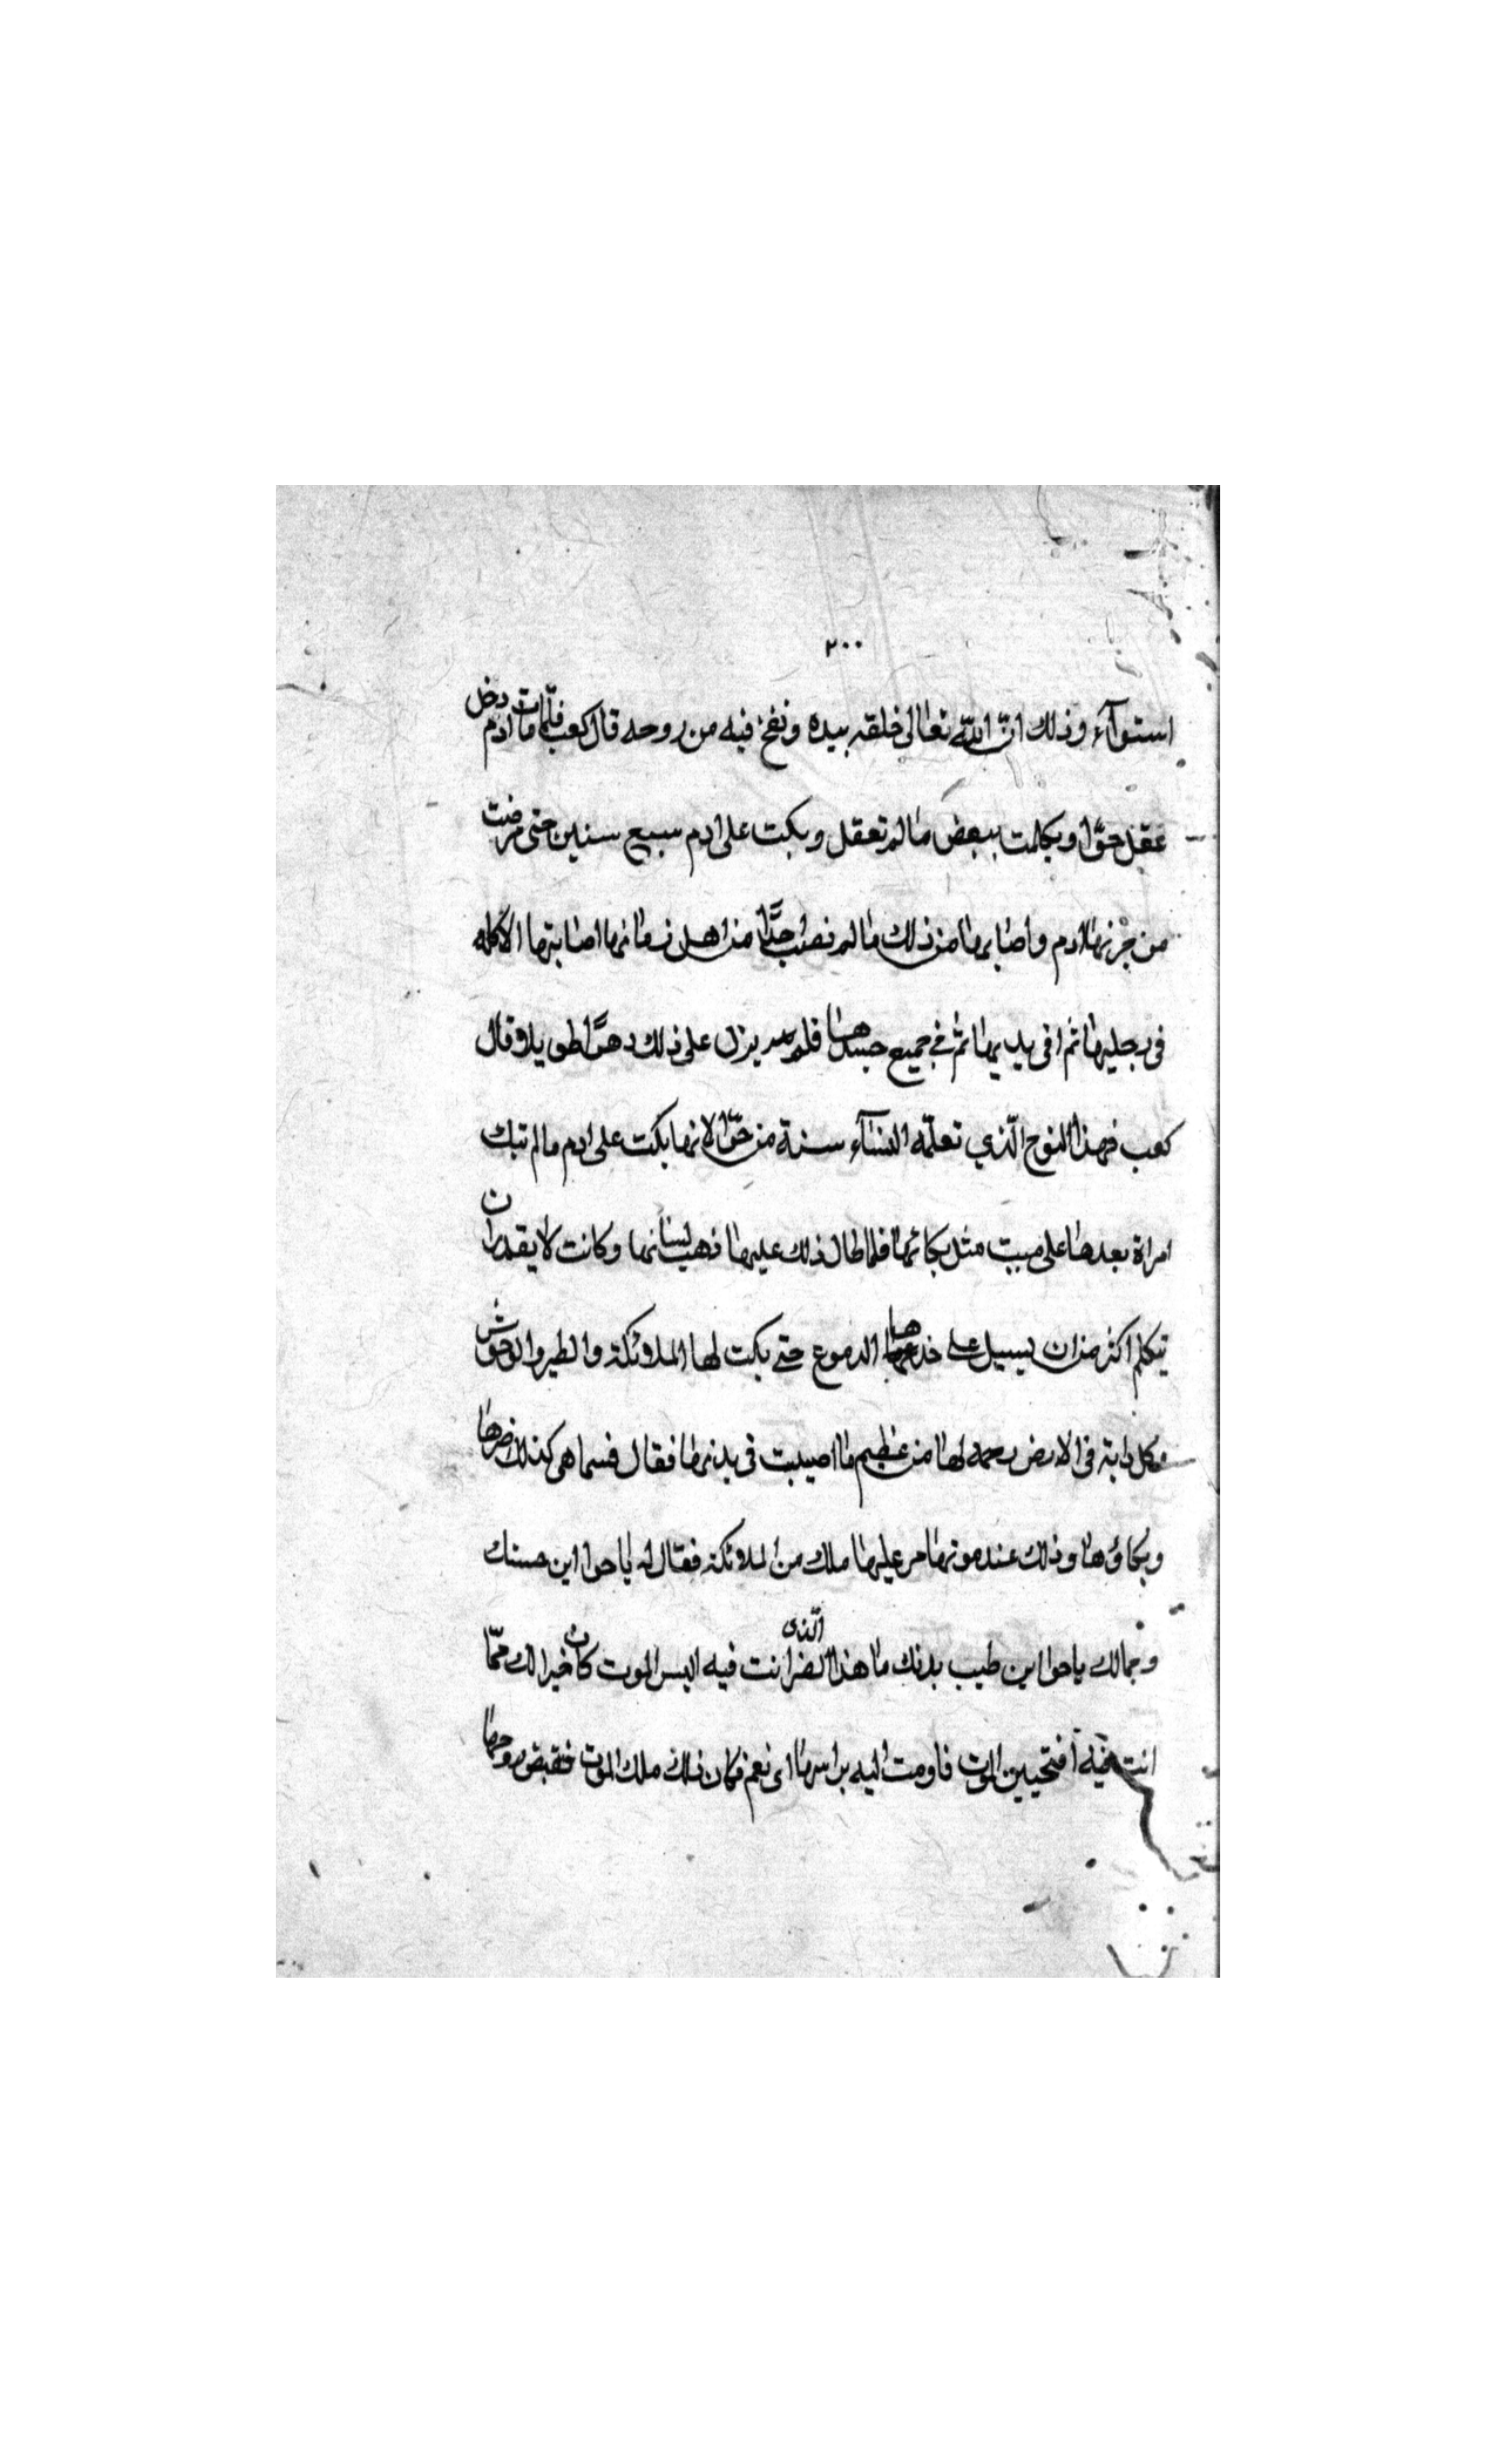 ٢٠٠
استوآء وذلك انّ اللّه تعالى خلقه بيده ونفخ فيه من روحه قال كعب فلمّا مات ادم دخل
عقل حوّا وتكلمت ببعض ما لم تعقل وبكت على ادم سبع سنين حتى مرضت
من حزنها ادم واصابها من ذلك ما لم نصب جدًّا من اهل زمانها اصابتها الاكله
فى رجليها ثم افى يديها ثم في جميع جسدها فلم يزل على ذلك دهرًا طويلا وقال
كعب فهذا النوح الّذي تعلمّه النساء سنة من حوّا لانها بكت على ادم ما لم تبك
امراة بعدها على ميت مثل بكائها فلما طال ذلك عليها ذهب لسانها وكانت لا يقدر ان
تتكلم اكثر من ان يسيل على خدها الدموع حتى بكت لها الملائكة والطير والوحوش
وكل دابة فى الارض رحمه لها من عظيم ما اصيبت فى بدنها فقال فسما هى كذلك ضرها
وبكاؤها وذلك عند موتها مر عليها ملك من الملائكة فقال له يا حوا اين حسنك
وجمالك يا حوا اين طيب بدنك ما هذا الضر الّذى انت فيه اليس الموت كان خيرا لك ممّا
انت فيه افتحبين الموت فاومت اليه براسها اى نعم فكان ذلك ملك الموت فقبض روحها